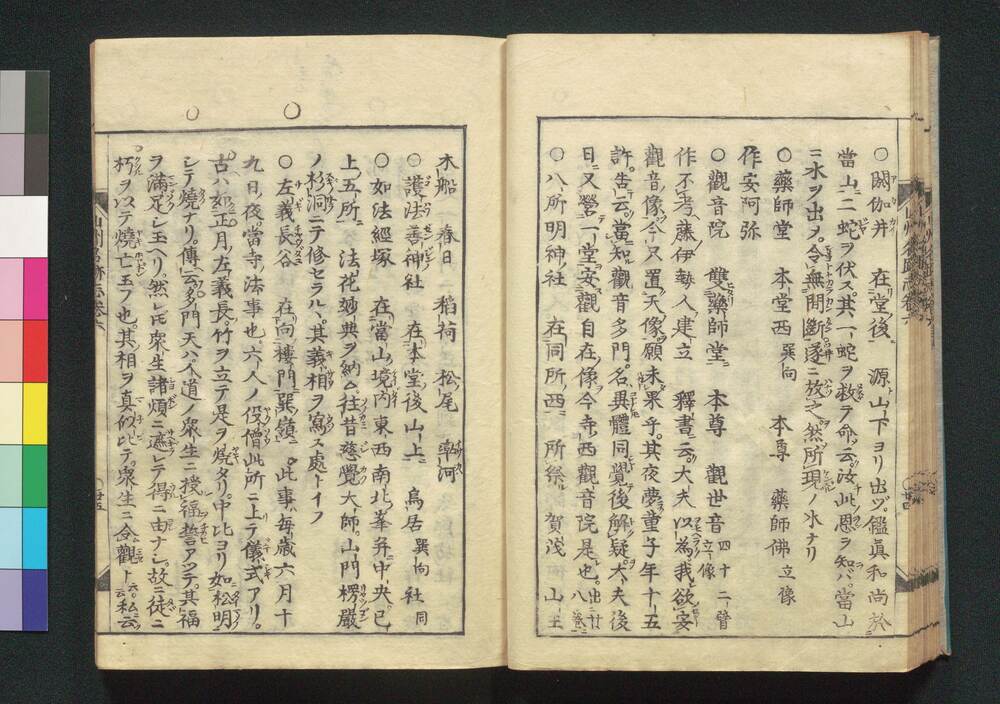 ○閼伽井　在堂後　源山下ヨリ出ヅ鑑真和尚於
當山ニ二蛇ヲ伏ス其一蛇ヲ救ヲ命云汝此恩ヲ知バ當山
ニ水ヲ出ス令無間斷遂ニ放之然所現ノ水ナリ
○藥師堂　本堂西巽向　本尊　藥師佛立像
作安阿弥
○觀音院　雙藥師堂　本尊　觀世音四十二臂立像
作不考藤伊勢人建立　釋書云大夫以為我欲安
觀音像今只置天像願未果乎其夜夢童子年十五
許告云當知觀音多門名異體同覺後解疑大夫後
日又營一堂安觀自在像今寺西觀音院是也出二廿八卷
○八所明神社　在同所西　所祭　賀茂　山王
木船　春日　稲荷　松尾　率河
○護法善神社　在本堂後山上　鳥居巽向　社同
○如法經塚　在當山境内東西南北峯并中央已
上五所　法花妙典ヲ納ム往昔慈覺大師山門楞嚴
ノ杉洞ニテ修セラル其義相ヲ寫ス處トイフ
○左義長谷　在向樓門巽嶺　此事毎歳六月十
九日夜當寺法事也六人ノ役僧此所ニ上テ儀式アリ
古ハ如正月左義長竹ヲ立テ是ヲ焼タリ中比ヨリ如松明
シテ燒ナリ傳云多門天ハ不道ノ衆生ニ授福誓アツテ其福
ヲ滿足シ玉ヘリ然レ𪜈衆生諸煩ニ遮レテ得ニ由ナシ故ニ徒ニ
朽ヲ以テ燒亡玉フ也其相ヲ真似ビテ衆生ニ令觀ト云云私云
山州名跡志巻六
○廿五